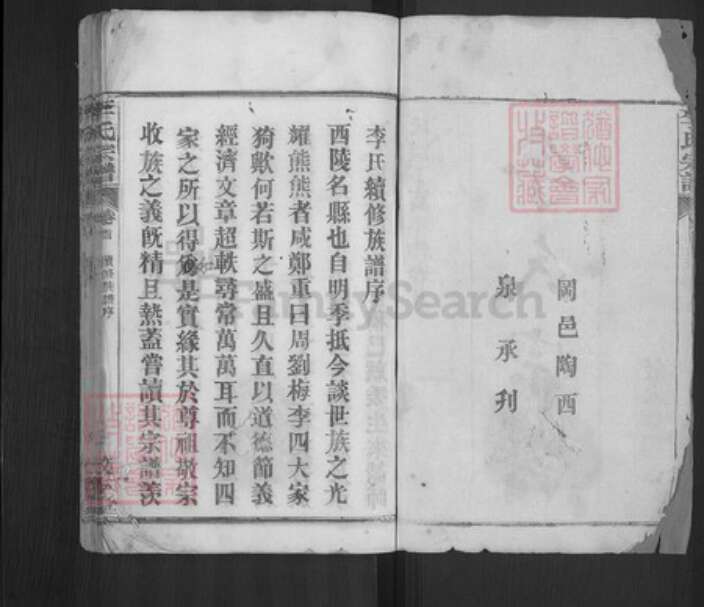 岡邑陶西
泉承刋
李氏續修族譜序
西陵名縣也自明季抵今談世族之光
耀熊熊者咸鄭重曰周劉梅李四大家
猗歟何若斯之盛且久直以道德節義
經濟文章超軼尋常萬萬耳而不知四
家之所以得爲是實緣其於尊祖敬宗
收族之義旣精且熟蓋嘗讀其宗譜羨
氏宗譜
卷首
續修族譜序
FamilySearch